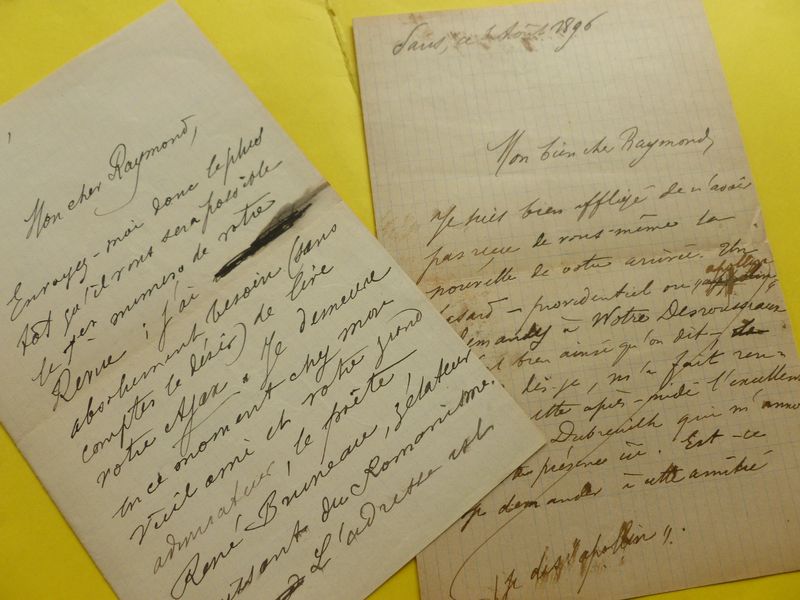 Mon cher Raymond,
Envoyez-moi donc le plus
tôt qu'il vous sera possible
le 1er numéro de votre
Revue ; j'ai
absolument besoin (sans
compter le désir) de lire
votre Ajax. Je demeure
en ce moment chez mon
vieil ami et votre grand
admirateur, le poète,
René Bruneau, zélateur
du Romanisme.
L'adresse est
août 1896
Mon bien cher Raymond,
Je suis bien affligé de n'avoir
pas reçu de vous-même la
nouvelle de votre arrivée. Un
providentiel ou
à Notre Desrousseaux
bien ainsi qu'on dit,
dis-je, m'a fait ren-
après-midi l'excellent
Dubreuilh qui m'anno
présence ici. Est-ce
demander à cette amitié